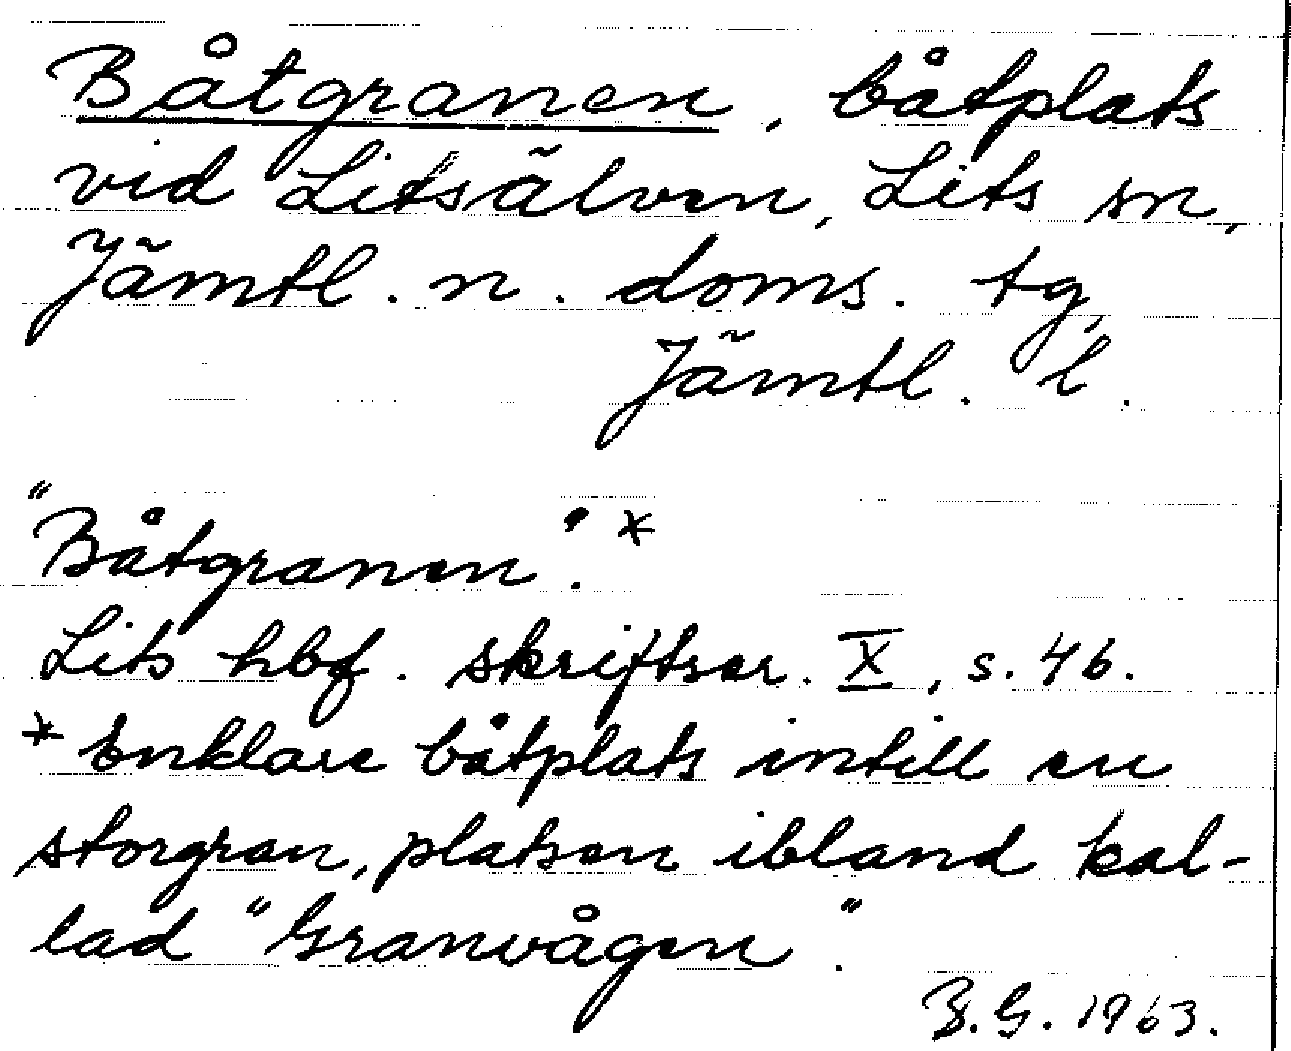 Båtgranen, båtplats
vid Litsälven, Lits sn,
Jämtl. n. doms. tg,
Jämtl. l.
"Båtgranen".*
Lits hbf. skriftser. X, s. 46.
* Enklare båtplats intill en
storgran, platsen ibland kal-
lad "Granvågen".
B.G. 1963.